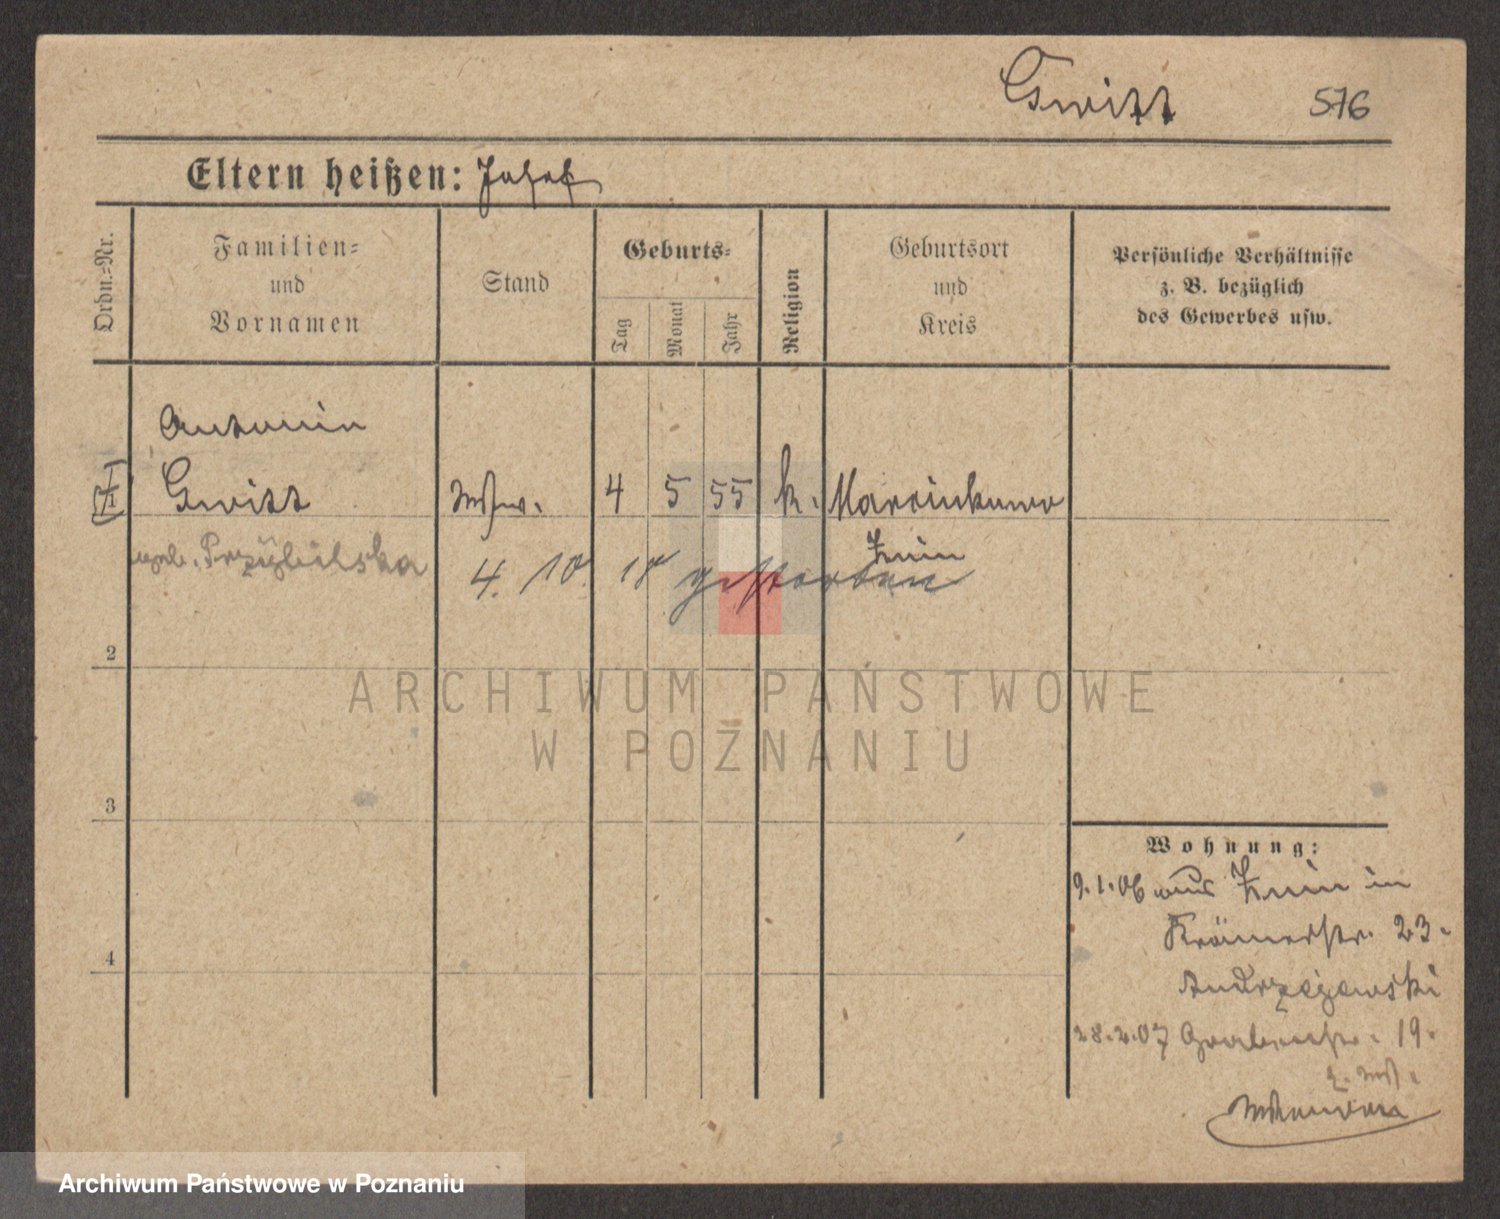 Gwitt 576
Eltern heißen: Josef
Ordn.=Nr.
Familien=
und
Vornamen
Stand
Geburts=
Tag
Monat
Jahr
Religion
Geburtsort
und
Kreis
Persönliche Verhältnisse
z. B. bezüglich
des Gewerbes usw.
Antonin
Gwitt Wtw. 4 5 55 k. Marcinkowo
Znin
geb. Przybilska
4. 10. 18 gestorben
2
3
4
Wohnung:
9.1.06 aus Znin in
Krämerstr. 23.
Andrzejewski
28.2.07 Grabenstr. 19.
ARCHIWUM PAŃSTWOWE
W POZNANIU
Archiwum Państwowe w Poznaniu